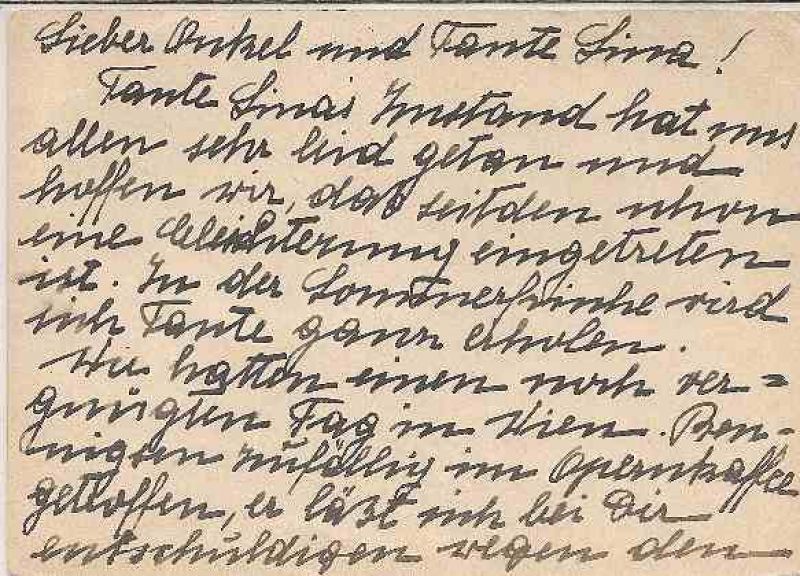 Lieber Onkel und Tante Lina!
Tante Lina's Zustand hat uns
allen sehr leid getan und
hoffen wir, daß seitden schon
eine Erleichterung eingetreten
ist. In der Sommerfrische wird
sich Tante ganz erholen.
Wir hatten einen noch ver=
gnügten Tag in Wien. Ben-
nigsen zufällig im Opernkaffee
getroffen, er läßt sich bei Dir
entschuldigen wegen den